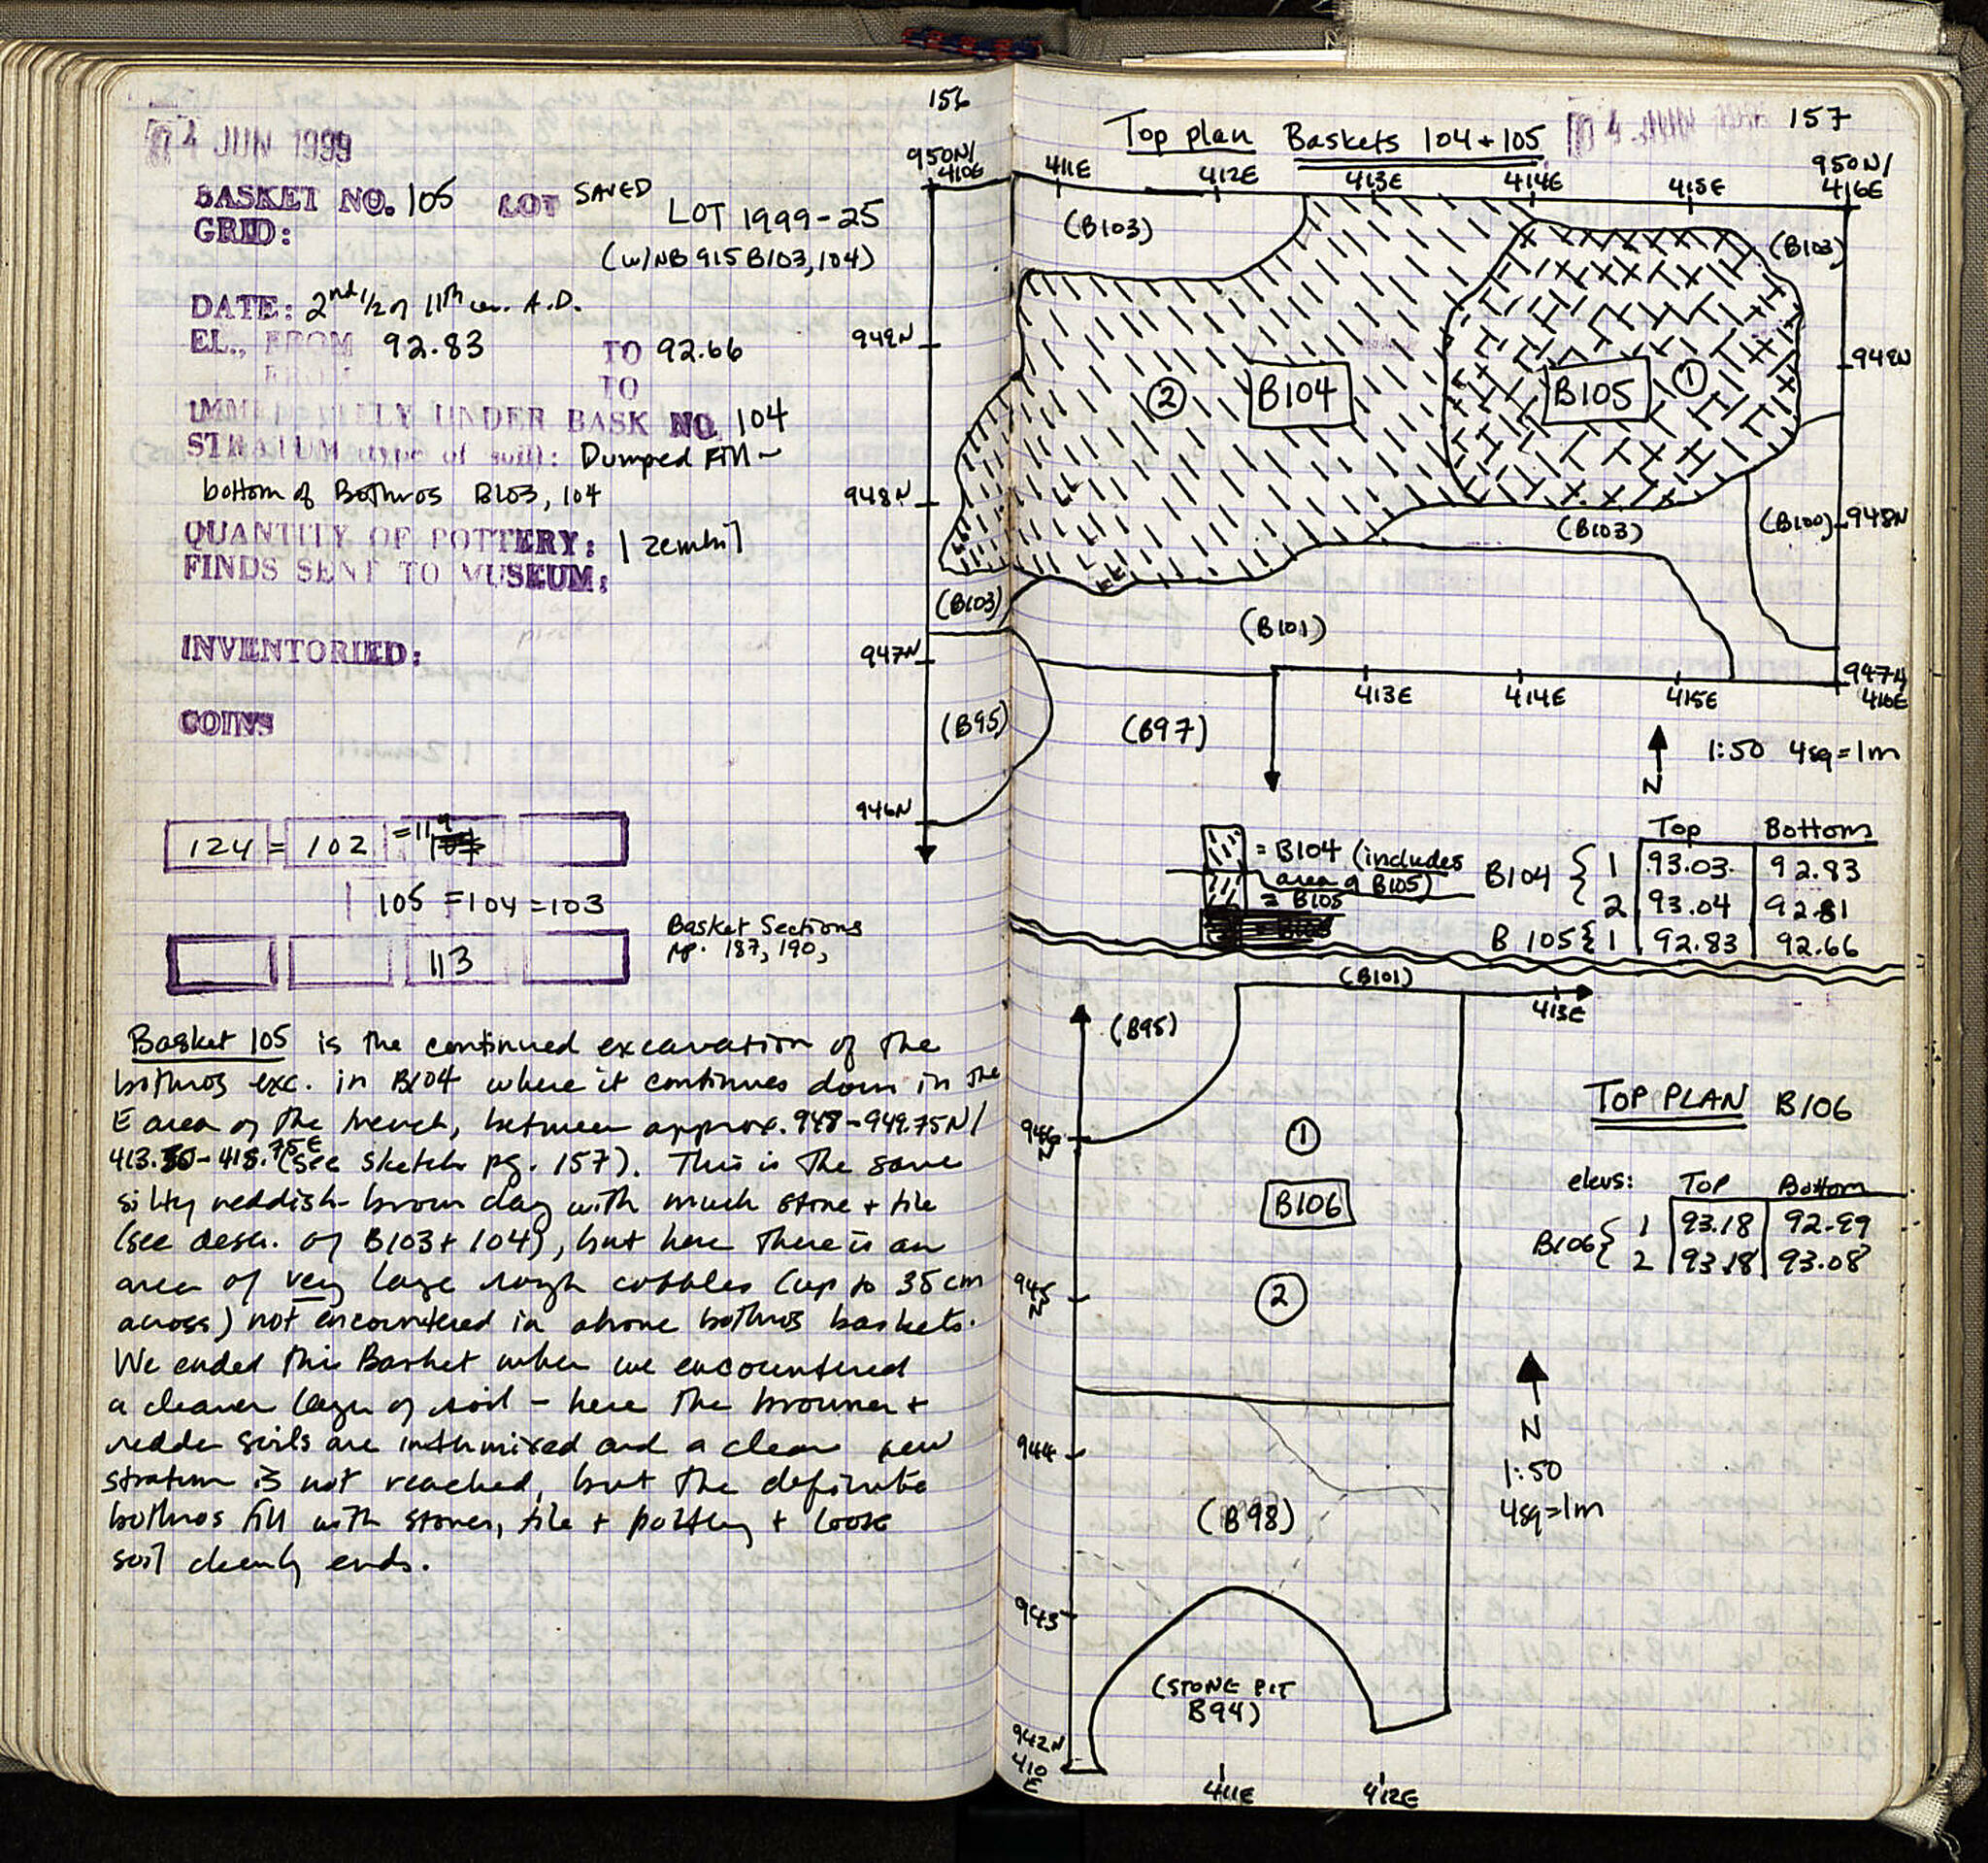 156
04 JUN 1999
BASKET NO. 105 LOT SAVED LOT 1999-25
GRID: (w/NB 915 B103, 104)
DATE: 2nd 1/2 of 11th A.D.
EL., FROM 92.83 TO 92.66
FROM TO
IMMEDIATELY UNDER BASK NO. 104
STRATUM (type of soil): Dumped Fill -
bottom of Bothros B103, 104
QUANTITY OF POTTERY: 1 zembil
FINDS SENT TO MUSEUM:
INVENTORIED:
COINS
124 = 102 = 119
105 = 104 = 103
Basket Sections
pp. 187, 190,
113
Basket 105 is the continued excavation of the
bothros exc. in B104 where it continues down in the
E area of the trench, between approx. 948-949.75N/
413.50-415.75E (see sketch pg. 157). This is the same
silty reddish-brown clay with much stone + tile
(see desc. of B103 + 104), but here there is an
area of very large rough cobbles (up to 35cm
across) not encountered in above bothros baskets.
We ended this Basket when we encountered
a cleaner layer of soil - here the browner +
redder soils are intermixed and a clear new
stratum is not reached, but the definite
bothros fill with stones, tile + pottery + loose
soil clearly ends.
157
Top plan Baskets 104 + 105
04 JUN 1999
950N/
410E
411E
412E
413E
414E
415E
950N/
416E
(B103)
(B103)
949N
949N
② B104
B105 ①
948N
(B103)
(B100)
948N
(B103)
(B101)
947N
413E
414E
415E
947N
416E
(B95)
(B97)
N
1:50 4sq=1m
946N
= B104 (includes
area of B105)
= B105
Top Bottom
B104 { 1 93.03 92.83
2 93.04 92.81
B105 { 1 92.83 92.66
(B101)
413E
(B95)
TOP PLAN B106
946
N
①
B106
elevs: Top Bottom
B106 { 1 93.18 92.99
2 93.18 93.08
945
N
②
N
1:50
4sq=1m
944
(B98)
943
(STONE PIT
B94)
942N
410
E
411E
412E